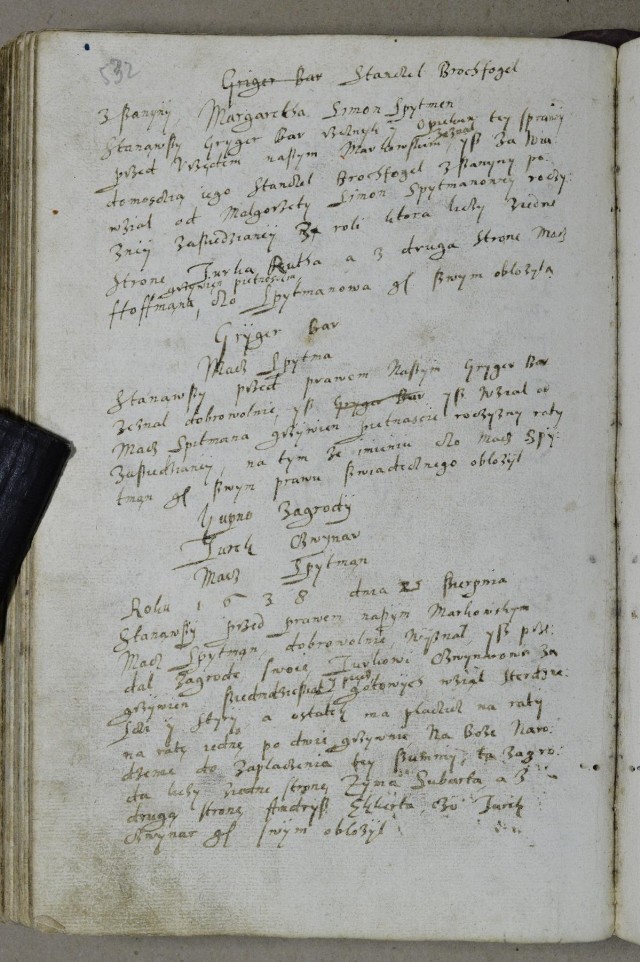 532
Gryger Bar Stanczel Brochfogel
z Stanyny Margarethą Simon Spytmen
Stanąwszy Gryger Bar rzecznyk y Opiekun tey sprawy
przed Urzędem naszym Markowskim zeznał ysz za wia
domoscią iego Stanczel Brochfogel z Stanyny po
wział od Malgorzety Simon Spytmanowey roczy
zney zasiedzianey z roli ktora liezy z iedne
Strone Jurka a z druga Strone Macz
grzywien pietnascie
Hoffmana, czo Spytmanowa gl swym oblozyla
Gryger Bar
Macz Spytma
Stanąwszy przed prawem Naszym Gryger Bar
zeznal dobrowolnie, ysz Gryger Bar ysz wzial od
Macz Spitmana grzywien pietnascie roczyzny raty
zasiedzianey, na tym ze imieniu czo Macz Spy
tman gl swym prawu swiadecznego oblozyl
Kupno Zagrody
Jurek Czwynar
Macz Spytman
Roku 1638 dnia sierpnia
Stanąwszy przed prawem naszym Markowskym
Macz Spytman, dobrowolnie, wyznal, ysz prze
dal zagrode swoie Jurkowi Czwynarowi za
grzywien siedmdziesiat gotowych wzial
y sztyry a ostatek ma placzicz na raty
na rate iedne po dwie grzywnie Na Boze Naro
dzenie do zaplaczenia tey Summy, ta zagro
da liezy z iedne strone Zyma Subarta a z
druga strone Andrysz Ekkerta czo Jurek
Czwynar gl swym oblozyl